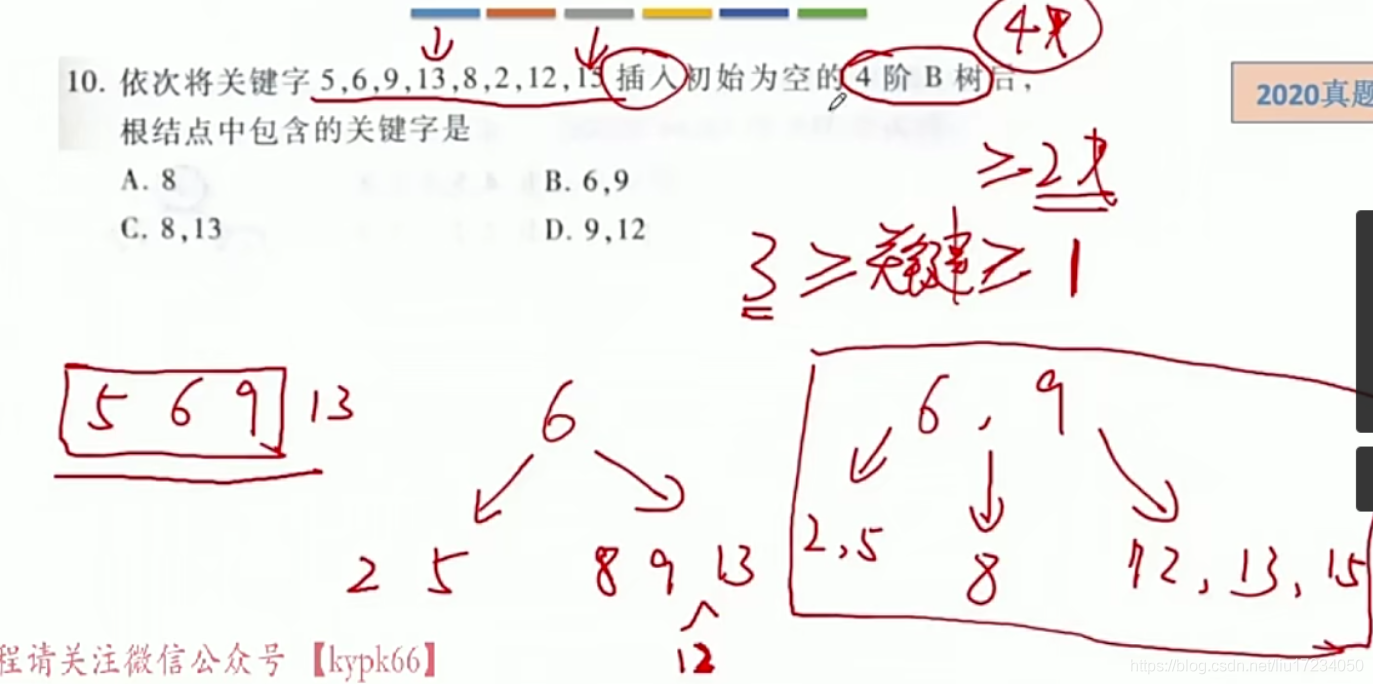 4叉
10. 依次将关键字5,6,9,13,8,2,12,15插入初始为空的4阶B树后,
2020真题
根结点中包含的关键字是
≥2叉
A. 8
B. 6,9
C. 8,13
D. 9,12
3≥关键≥1
5 6 9 13
6
6, 9
2 5
8 9 13
2,5
8
12, 13, 15
12
程请关注微信公众号【kypk66】
https://blog.csdn.net/liu17234050